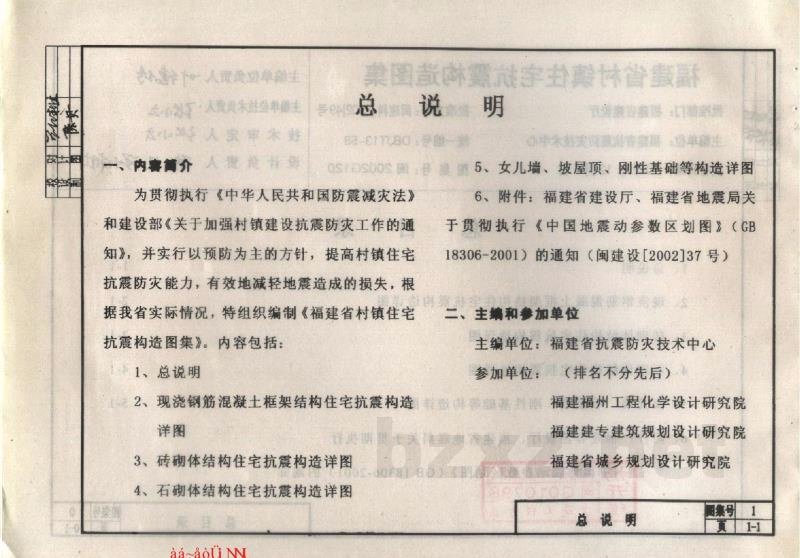 总 说 明
一、内容简介
为贯彻执行《中华人民共和国防震减灾法》
和建设部《关于加强村镇建设抗震防灾工作的通
知》，并实行以预防为主的方针，提高村镇住宅
抗震防灾能力，有效地减轻地震造成的损失，根
据我省实际情况，特组织编制《福建省村镇住宅
抗震构造图集》。内容包括：
1、总说明
2、现浇钢筋混凝土框架结构住宅抗震构造
详图
3、砖砌体结构住宅抗震构造详图
4、石砌体结构住宅抗震构造详图
5、女儿墙、坡屋顶、刚性基础等构造详图
6、附件：福建省建设厅、福建省地震局关
于贯彻执行《中国地震动参数区划图》（GB
18306-2001）的通知（闽建设[2002]37号）
二、主编和参加单位
主编单位：福建省抗震防灾技术中心
参加单位：（排名不分先后）
福建福州工程化学设计研究院
福建建专建筑规划设计研究院
福建省城乡规划设计研究院
总 说 明
图集号 1
页 1-1
àá~åòÜ NN